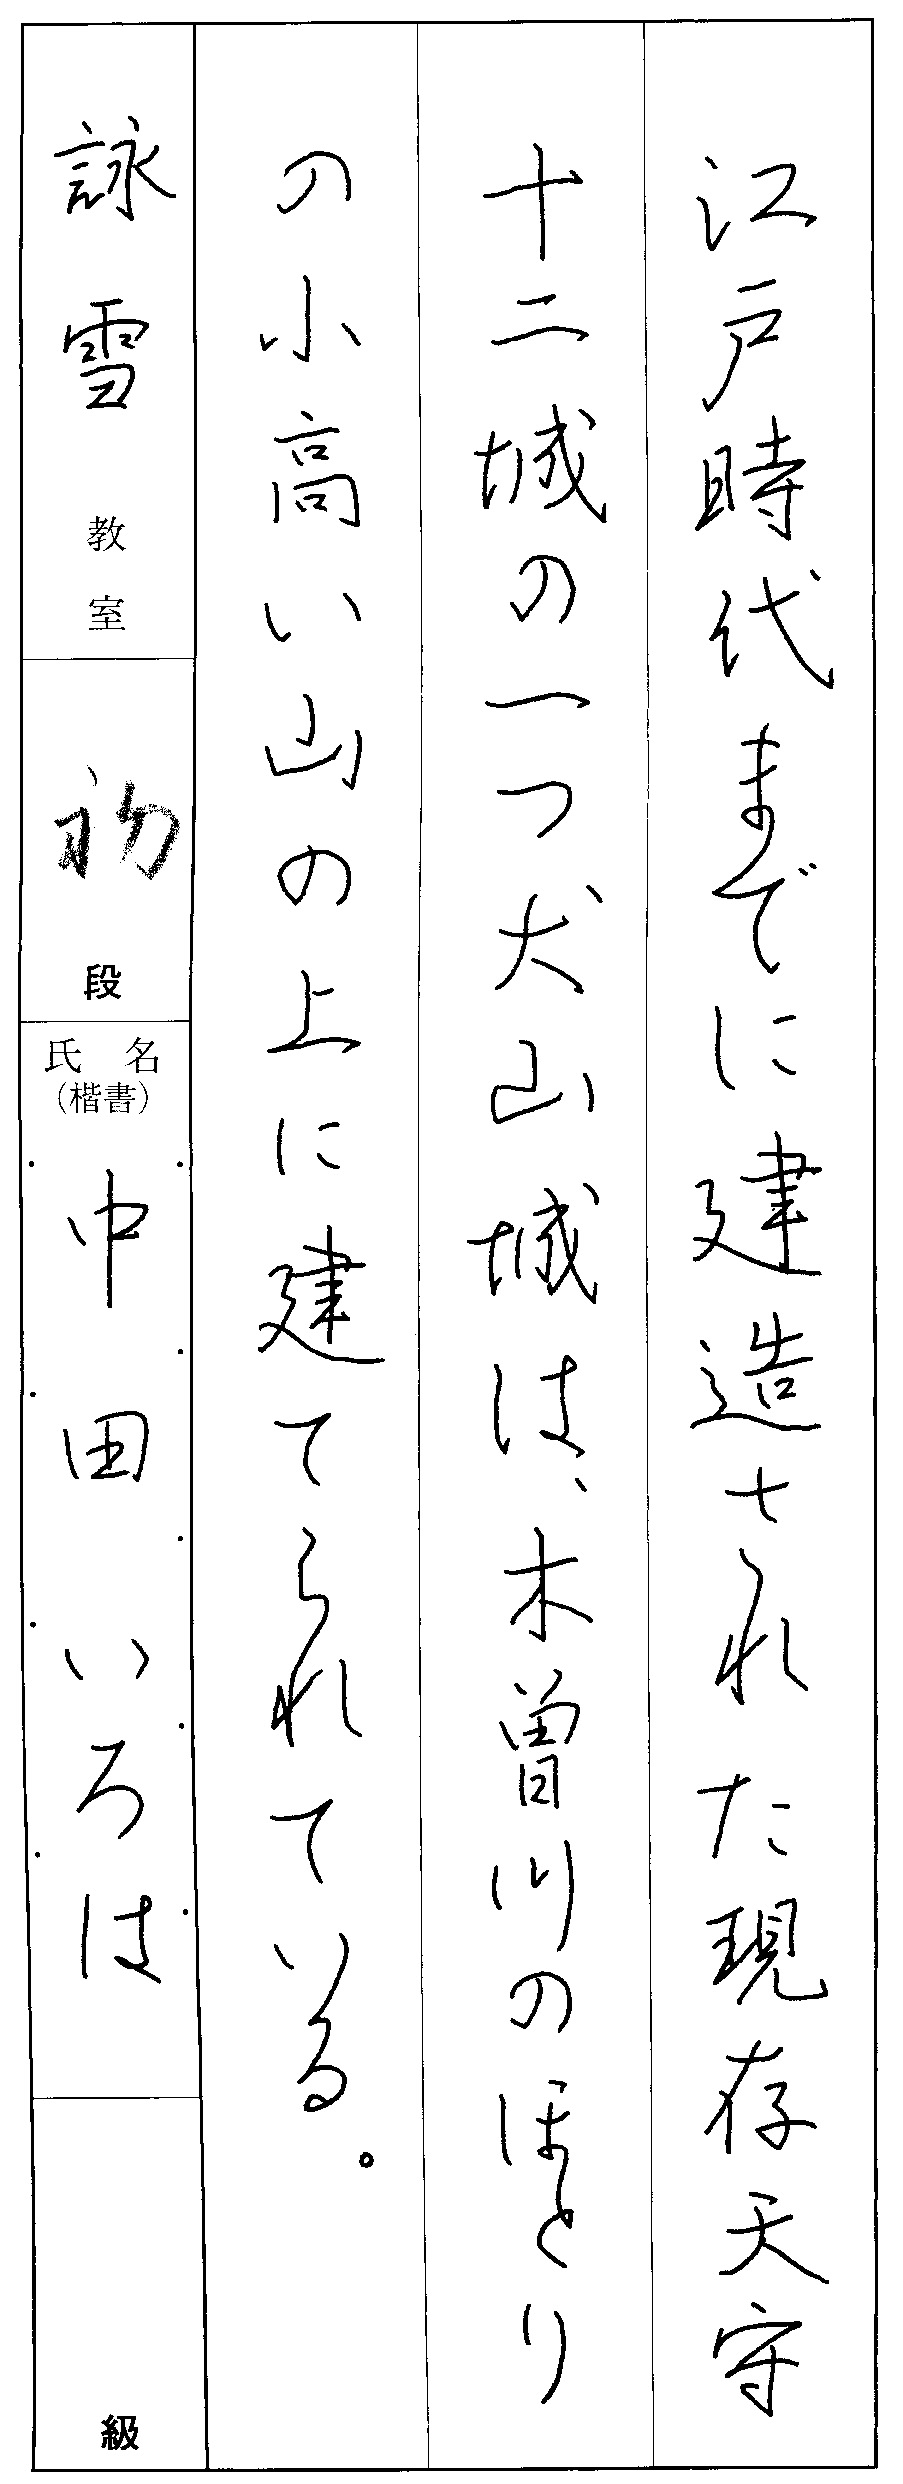 江戸時代までに建造された現存天守
十二城の一つ犬山城は、木曽川のほとり
の小高い山の上に建てられている。
詠雪教室
初段
氏名
（楷書）
中田いろは
級